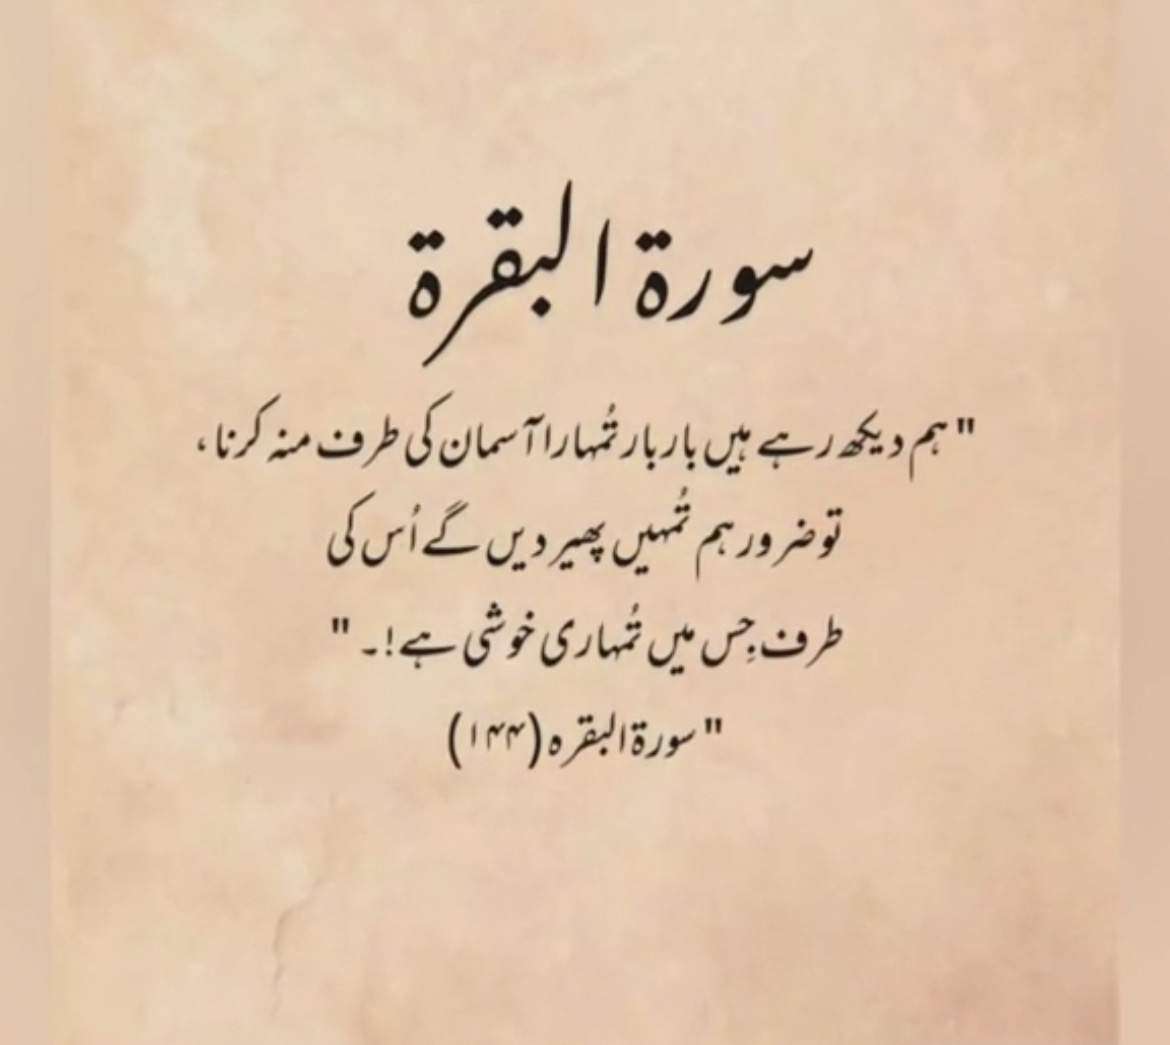 سورۃ البقرۃ
"ہم دیکھ رہے ہیں بار بار تُمہارا آسمان کی طرف منہ کرنا،
تو ضرور ہم تُمہیں پھیر دیں گے اُس کی
طرف جِس میں تُمہاری خوشی ہے!۔"
"سورۃ البقرہ (۱۴۴)